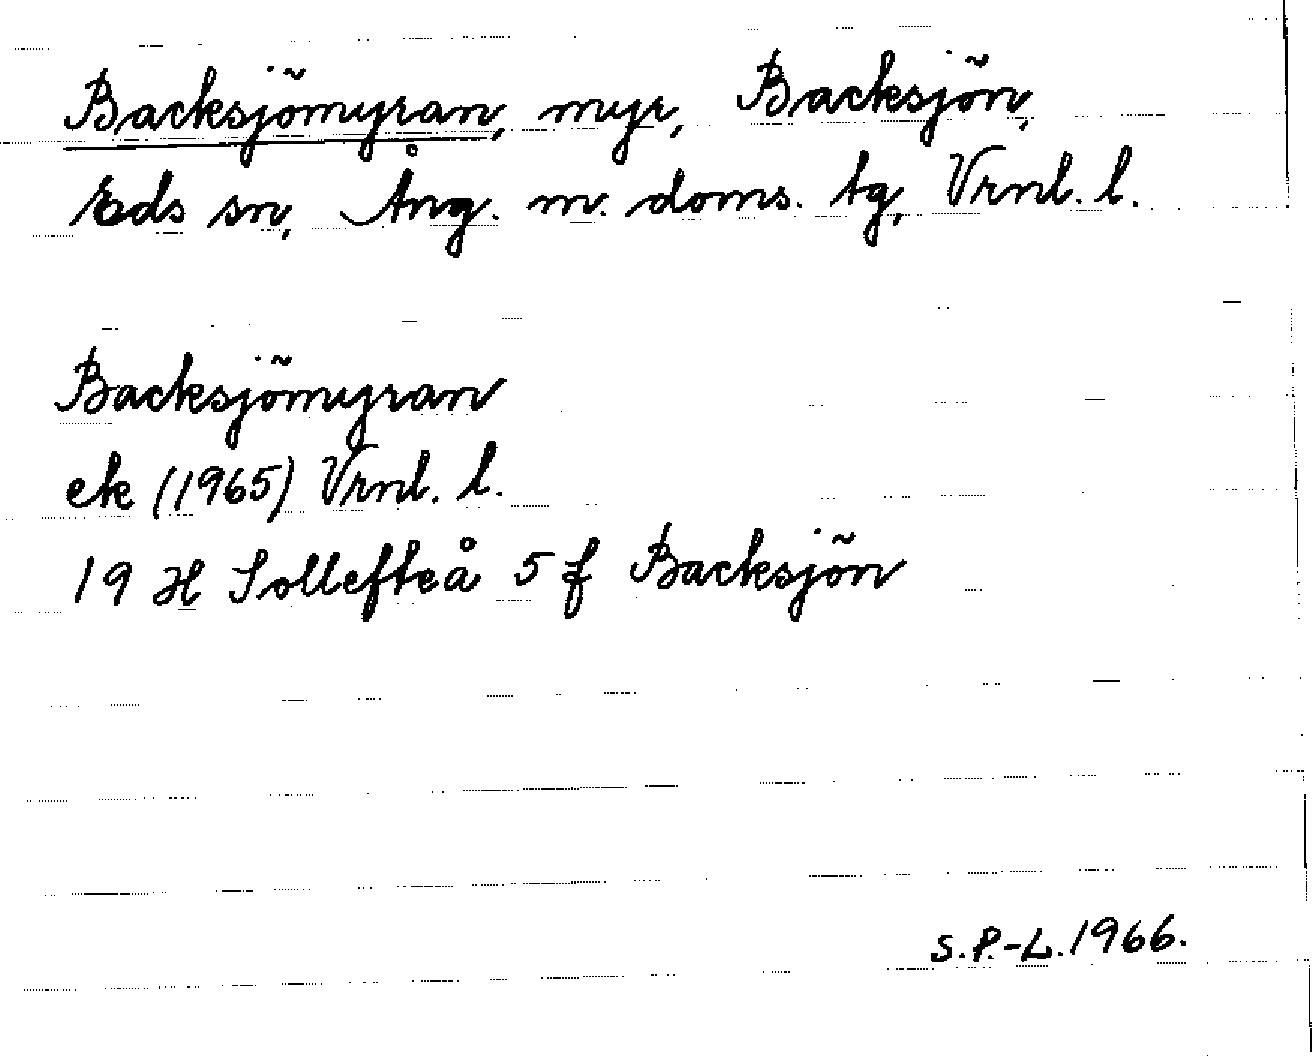 Backsjömyran, myr, Backsjön,
Eds sn, Ång. m. doms. tg, Vrnl. l.
Backsjömyran
ek (1965) Vrnl. l.
19 H Sollefteå 5 f Backsjön
S.P.-L. 1966.